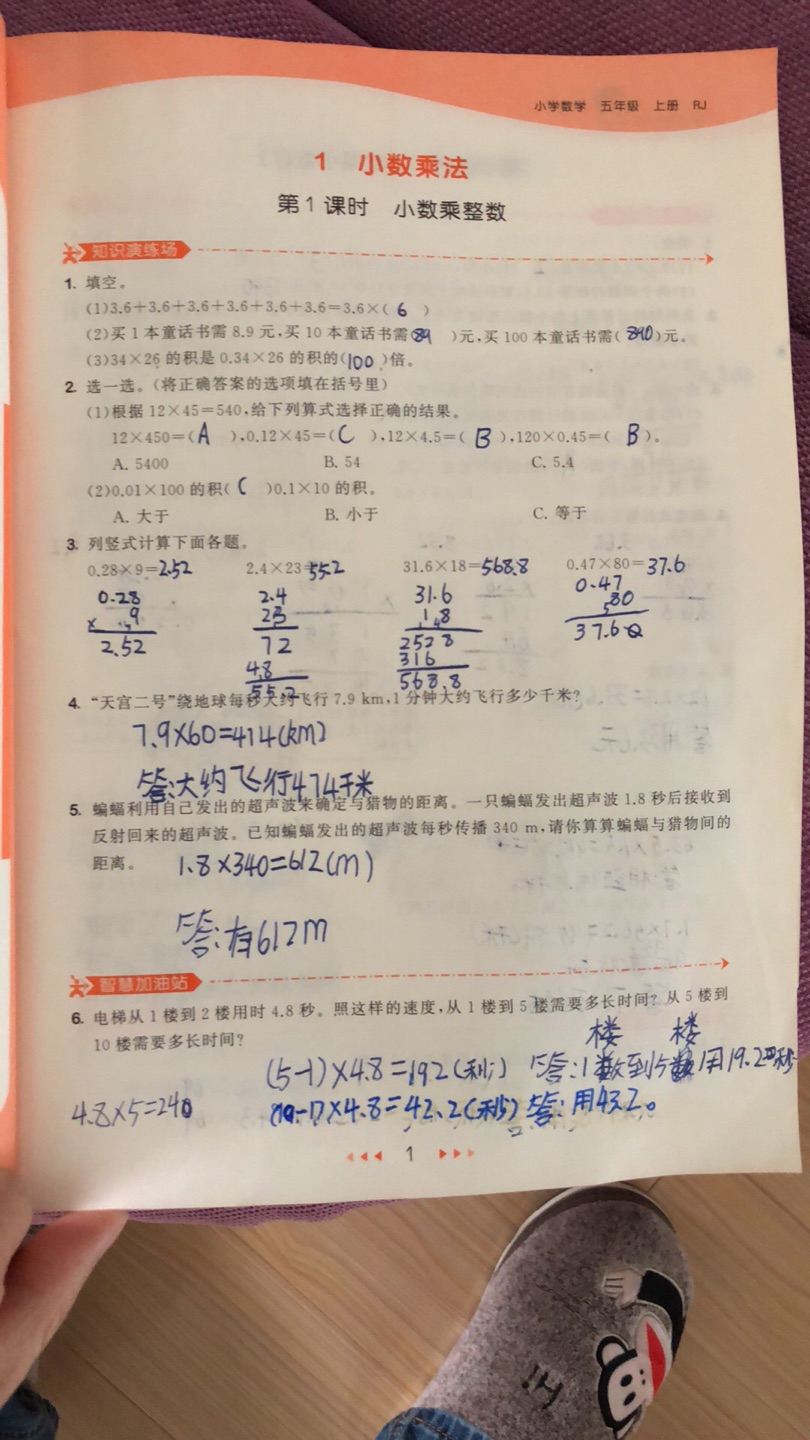 小学数学 五年级 上册 RJ
1 小数乘法
第1课时 小数乘整数
知识演练场
1. 填空。
(1)3.6+3.6+3.6+3.6+3.6+3.6=3.6×( 6 )
(2)买1本童话书需8.9元,买10本童话书需(89 )元,买100本童话书需( 890)元。
(3)34×26的积是0.34×26的积的(100 )倍。
2. 选一选。(将正确答案的选项填在括号里)
(1)根据12×45=540,给下列算式选择正确的结果。
12×450=(A ),0.12×45=( C ),12×4.5=( B ),120×0.45=( B )。
A. 5400 B. 54 C. 5.4
(2)0.01×100的积( C )0.1×10的积。
A. 大于 B. 小于 C. 等于
3. 列竖式计算下面各题。
0.28×9=2.52 2.4×23=55.2 31.6×18=568.8 0.47×80=37.6
0.28 2.4 31.6 0.47
× 9 23 18 80
2.52 72 2528 37.60
4.8 316
55.2 568.8
4. “天宫二号”绕地球每秒大约飞行7.9 km,1分钟大约飞行多少千米?
7.9×60=474(km)
答:大约飞行474千米
5. 蝙蝠利用自己发出的超声波来确定与猎物的距离。一只蝙蝠发出超声波1.8秒后接收到
反射回来的超声波。已知蝙蝠发出的超声波每秒传播340 m,请你算算蝙蝠与猎物间的
距离。 1.8×340=612(m)
答:有612m
智慧加油站
6. 电梯从1楼到2楼用时4.8秒。照这样的速度,从1楼到5楼需要多长时间?从5楼到
10楼需要多长时间?
楼 楼
(5-1)×4.8=192(秒) 答:1到5用19.2秒
4.8×5=240 (10-1)×4.8=42.2(秒) 答:用43.2。
1
Hi